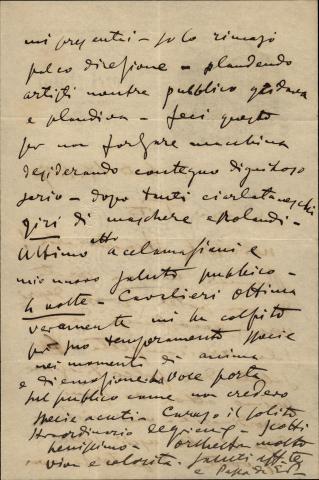 mi presentai - solo rimasi
palco direzione - plaudendo
artisti mentre pubblico gridava
e plaudiva - feci questo
per non forzare macchina
desiderando contegno dignitoso
serio - dopo tanti ciarlataneschi
giri di maschere e Rolandi -
Ultimo atto acclamazioni e
mio nuovo saluto pubblico -
4 volte - Cavalieri ottima
veramente mi ha colpito
per suo temperamento specie
nei momenti di anima
e di emozione ha voce porta
sul pubblico come non credevo
specie acuti - Caruso il solito
straordinario - Scotti
benissimo - orchestra molto
viva e colorita - saluti
e Papà di